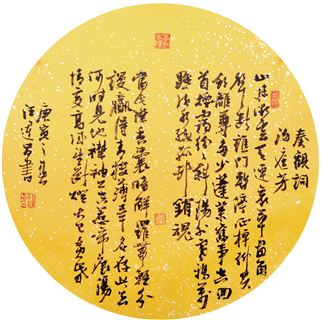 秦觀詞
滿庭芳
山抹微雲天連衰草畫角
聲斷譙門暫停征棹聊共
引離尊多少蓬萊舊事空回
首煙靄紛紛斜陽外寒鴉萬
點流水繞孤邨銷魂
當此際香囊暗解羅帶輕分
謾贏得青樓薄幸名存此去
何時見也襟袖上空惹啼痕傷
情處高城望斷燈火已黃昏
庚寅之春
書